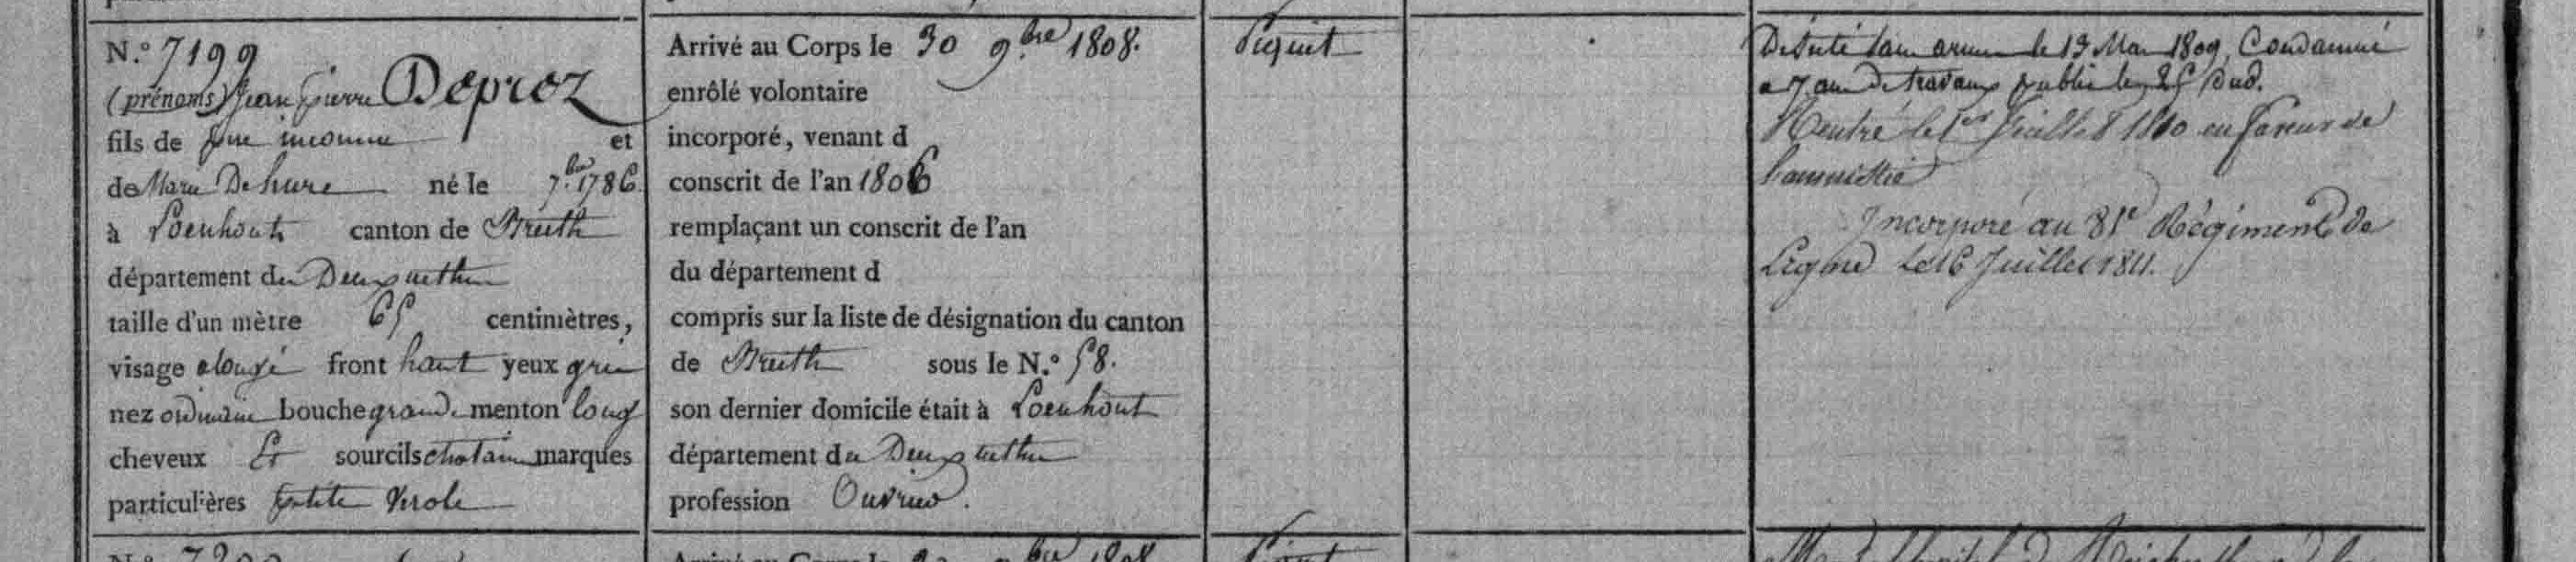 N.o 7199
(prénoms) Jean Pierre Deproz
fils de père inconnu et
de Marie Dehure né le 7.bre 1786.
à Loenhout canton de Breth
département des Deux nethes
taille d'un mètre 65 centimètres,
visage alongé front haut yeux gris
nez ordinaire bouche grande menton long
cheveux Et sourcils chatains marques
particulières petite verole
Arrivé au Corps le 30 9.bre 1808.
enrôlé volontaire
incorporé, venant d
conscrit de l'an 1806
remplaçant un conscrit de l'an
du département d
compris sur la liste de désignation du canton
de Breth sous le N.o 58.
son dernier domicile était à Loenhout
département des Deux nethes
profession Ouvrier.
Piquet
Déserté sans armes le 13 Mars 1809, Condamné
a 7 ans de travaux publics le 25 Dud.
Rentré le 1er Juillet 1810 en faveur de
l'amnistie
Incorporé au 81e Régiment de
Ligne Le 16 Juillet 1811.
N.o 7200
Arrivé au Corps le 30 9.bre 1808
Piquet